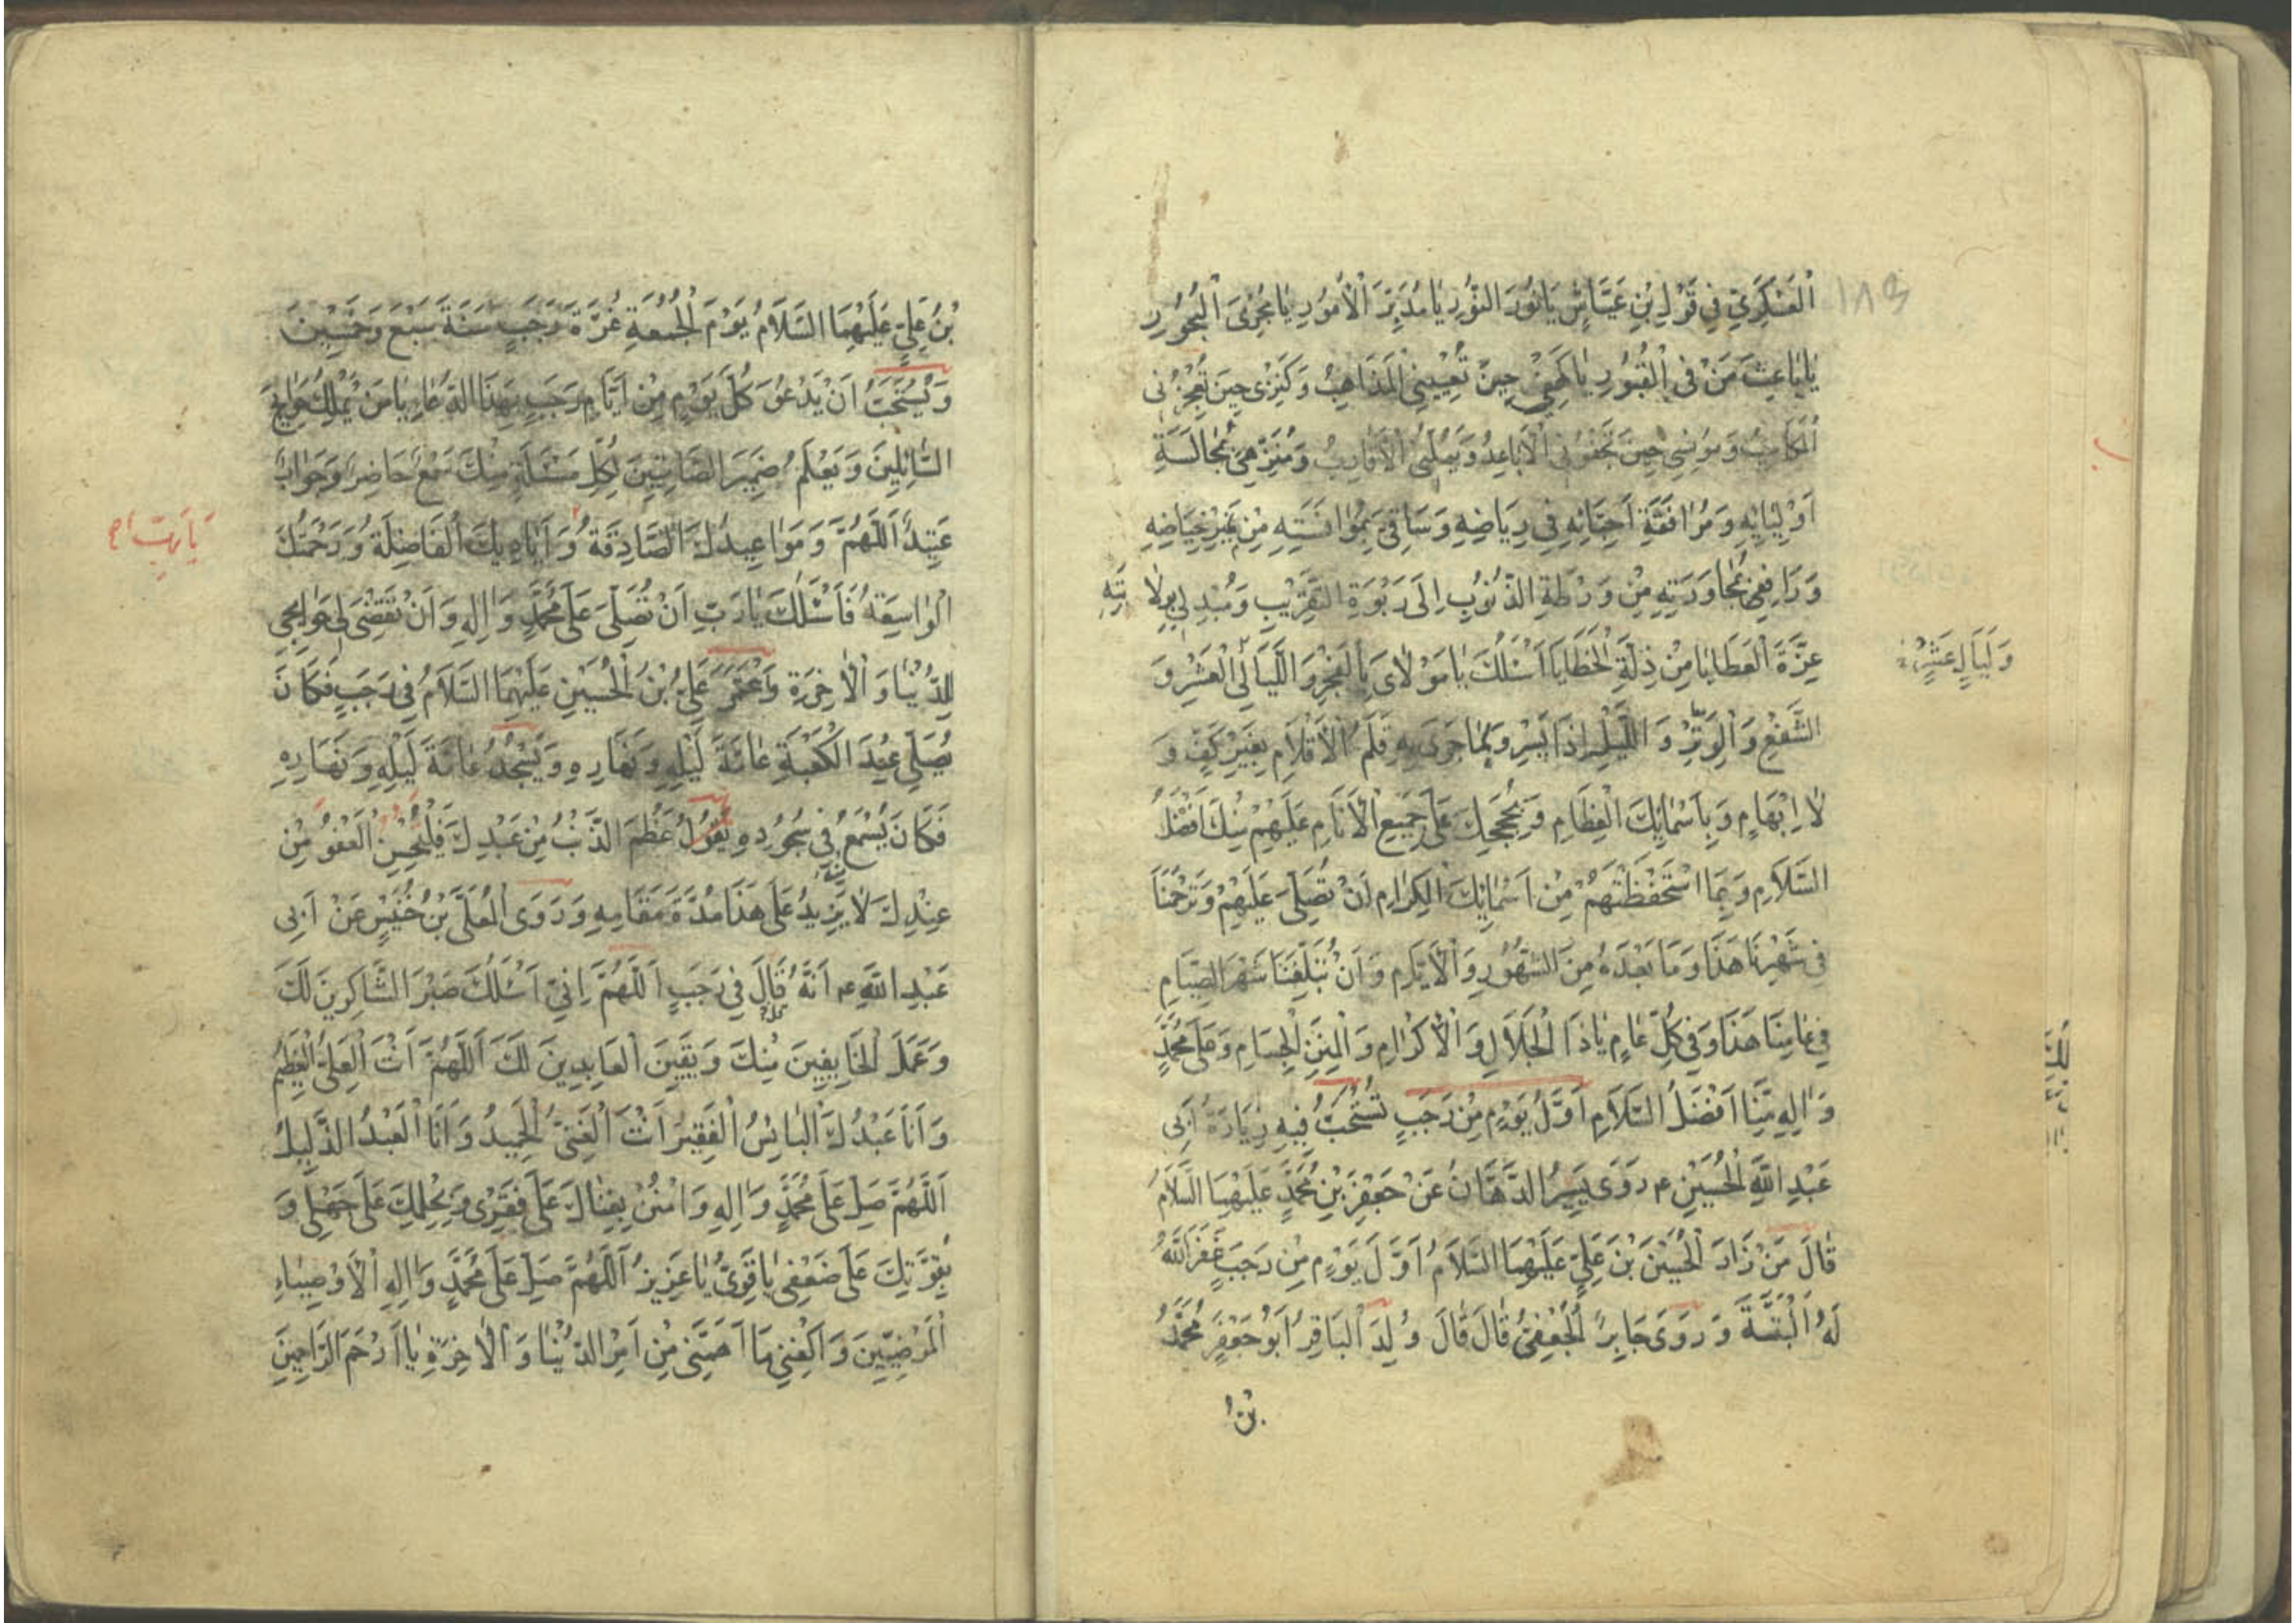 الْعَسْكَرِيِّ فِي قَوْلِ بْنِ عَيَّاشٍ يَا نُورَ النُّورِ يَا مُدَبِّرَ الْأُمُورِ يَا مُجْرِيَ الْبُحُورِ
يَا بَاعِثَ مَنْ فِي الْقُبُورِ يَا كَهْفِي حِينَ تُعْيِينِي الْمَذَاهِبُ وَكَنْزِي حِينَ تُعْجِزُنِي
الْمَكَاسِبُ وَمُونِسِي حِينَ تَجْفُونِي الْأَبَاعِدُ وَتَمَلُّنِي الْأَقَارِبُ وَمُنَزِّهِي بِمُجَالَسَةِ
أَوْلِيَائِهِ وَمُرَافَقَةِ أَحِبَّائِهِ فِي رِيَاضِهِ وَسَاقِيَّ بِمُوَانَسَتِهِ مِنْ نَمِيرِ حِيَاضِهِ
وَرَافِعِي بِمُجَاوَرَتِهِ مِنْ وَرْطَةِ الذُّنُوبِ إِلَى رَبْوَةِ التَّقْرِيبِ وَمُبَدِّلِي بِوِلَايَتِهِ
عِزَّةَ الْعَطَايَا مِنْ ذِلَّةِ الْخَطَايَا أَسْئَلُكَ يَا مَوْلَايَ بِالْفَجْرِ وَاللَّيَالِي الْعَشْرِ وَ
وَلَيَالٍ عَشْرٍ
الشَّفْعِ وَالْوَتْرِ وَاللَّيْلِ إِذَا يَسْرِ وَبِمَا جَرَى بِهِ قَلَمُ الْأَقْلَامِ بِغَيْرِ كَفٍّ وَ
لَا إِبْهَامٍ وَبِأَسْمَائِكَ الْعِظَامِ وَبِحُجَجِكَ عَلَى جَمِيعِ الْأَنَامِ عَلَيْهِمْ مِنْكَ أَفْضَلُ
السَّلَامِ وَبِمَا اسْتَحْفَظْتَهُمْ مِنْ أَسْمَائِكَ الْكِرَامِ أَنْ تُصَلِّيَ عَلَيْهِمْ وَتَرْحَمَنَا
فِي شَهْرِنَا هَذَا وَمَا بَعْدَهُ مِنَ الشُّهُورِ وَالْأَيَّامِ وَأَنْ تُبَلِّغَنَا شَهْرَ الصِّيَامِ
فِي عَامِنَا هَذَا وَفِي كُلِّ عَامٍ يَا ذَا الْجَلَالِ وَالْإِكْرَامِ وَالْمِنَنِ الْجِسَامِ وَعَلَى مُحَمَّدٍ
وَآلِهِ مِنَّا أَفْضَلُ السَّلَامِ أَوَّلُ يَوْمٍ مِنْ رَجَبٍ تُسْتَحَبُّ فِيهِ زِيَارَةُ أَبِي
عَبْدِ اللَّهِ الْحُسَيْنِ ء رَوَى بَشِيرُ الدَّهَّانُ عَنْ جَعْفَرِ بْنِ مُحَمَّدٍ عَلَيْهِمَا السَّلَامُ
قَالَ مَنْ زَارَ الْحُسَيْنَ بْنَ عَلِيٍّ عَلَيْهِمَا السَّلَامُ أَوَّلَ يَوْمٍ مِنْ رَجَبٍ غَفَرَ اللَّهُ
لَهُ الْبَتَّةَ وَرَوَى جَابِرُ الْجُعْفِيُّ قَالَ قَالَ وُلِدَ الْبَاقِرُ أَبُو جَعْفَرٍ مُحَمَّدُ
بْنُ
بْنُ عَلِيٍّ عَلَيْهِمَا السَّلَامُ يَوْمَ الْجُمُعَةِ غُرَّةَ رَجَبٍ سَنَةَ سَبْعَ وَخَمْسِينَ
وَيُسْتَحَبُّ أَنْ يَدْعُوَ كُلَّ يَوْمٍ مِنْ أَيَّامِ رَجَبٍ بِهَذَا الدُّعَاءِ يَا مَنْ يَمْلِكُ حَوَائِجَ
السَّائِلِينَ وَيَعْلَمُ ضَمِيرَ الصَّامِتِينَ لِكُلِّ مَسْئَلَةٍ مِنْكَ سَمْعٌ حَاضِرٌ وَجَوَابٌ
عَتِيدٌ اَللَّهُمَّ وَمَوَاعِيدُكَ الصَّادِقَةُ وَأَيَادِيكَ الْفَاضِلَةُ وَرَحْمَتُكَ
الْوَاسِعَةُ فَأَسْئَلُكَ يَا رَبِّ أَنْ تُصَلِّيَ عَلَى مُحَمَّدٍ وَآلِهِ وَأَنْ تَقْضِيَ لِي حَوَائِجِي
لِلدُّنْيَا وَالْآخِرَةِ وَاعْتَمَرَ عَلِيُّ بْنُ الْحُسَيْنِ عَلَيْهِمَا السَّلَامُ فِي رَجَبٍ فَكَانَ
يُصَلِّي عِنْدَ الْكَعْبَةِ عَامَّةَ لَيْلِهِ وَنَهَارِهِ وَيَسْجُدُ عَامَّةَ لَيْلِهِ وَنَهَارِهِ
فَكَانَ يُسْمَعُ فِي سُجُودِهِ يَقُولُ عَظُمَ الذَّنْبُ مِنْ عَبْدِكَ فَلْيَحْسُنِ الْعَفْوُ مِنْ
عِنْدِكَ لَا يَزِيدُ عَلَى هَذَا مُدَّةَ مَقَامِهِ وَرَوَى الْمُعَلَّى بْنُ خُنَيْسٍ عَنْ أَبِي
عَبْدِ اللَّهِ ء أَنَّهُ قَالَ فِي رَجَبٍ اَللَّهُمَّ إِنِّي أَسْئَلُكَ صَبْرَ الشَّاكِرِينَ لَكَ
وَعَمَلَ الْخَائِفِينَ مِنْكَ وَيَقِينَ الْعَابِدِينَ لَكَ اَللَّهُمَّ أَنْتَ الْعَلِيُّ الْعَظِيمُ
وَأَنَا عَبْدُكَ الْبَائِسُ الْفَقِيرُ أَنْتَ الْغَنِيُّ الْحَمِيدُ وَأَنَا الْعَبْدُ الذَّلِيلُ
اَللَّهُمَّ صَلِّ عَلَى مُحَمَّدٍ وَآلِهِ وَامْنُنْ بِغِنَاكَ عَلَى فَقْرِي وَبِحِلْمِكَ عَلَى جَهْلِي وَ
بِقُوَّتِكَ عَلَى ضَعْفِي يَا قَوِيُّ يَا عَزِيزُ اَللَّهُمَّ صَلِّ عَلَى مُحَمَّدٍ وَآلِهِ الْأَوْصِيَاءِ
الْمَرْضِيِّينَ وَاكْفِنِي مَا أَهَمَّنِي مِنْ أَمْرِ الدُّنْيَا وَالْآخِرَةِ يَا أَرْحَمَ الرَّاحِمِينَ